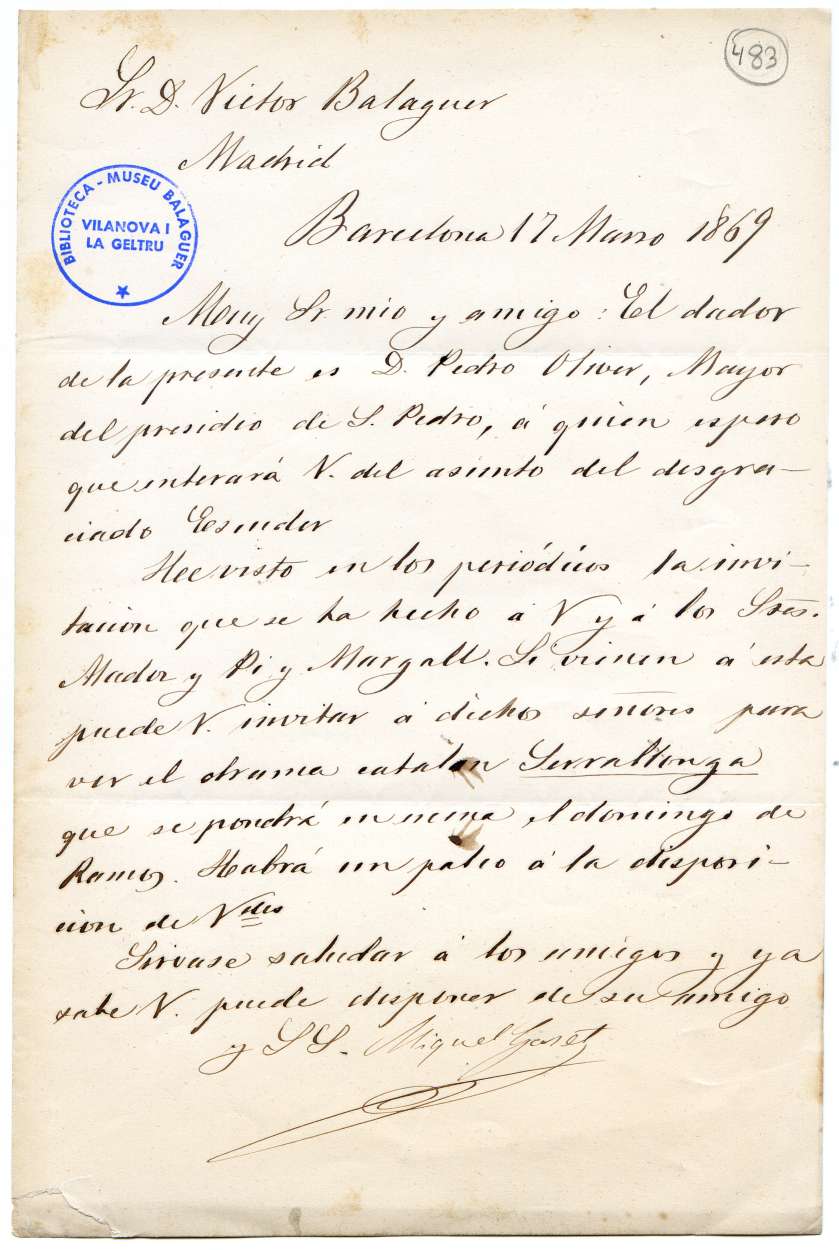 483
Sr. D. Victor Balaguer
Madrid
BIBLIOTECA - MUSEU BALAGUER
VILANOVA I
LA GELTRU
Barcelona 17 Marzo 1869
Muy Sr. mio y amigo: El dador
de la presente es D. Pedro Oliver, Mayor
del presidio de S. Pedro, á quien espero
que enterará V. del asunto del desgra-
ciado Escuder
He visto en los periódicos la invi-
tacion que se ha hecho á V y á los Sres.
Madoz y Pi y Margall. Si vienen á esta
puede V. invitar á dichos señores para
ver el drama catalan Serrallonga
que se pondrá en escena el domingo de
Ramos. Habrá un palco á la disposi-
cion de Vdes
Sirvase saludar á los amigos y ya
sabe V. puede disponer de su amigo
y SS. Miquel